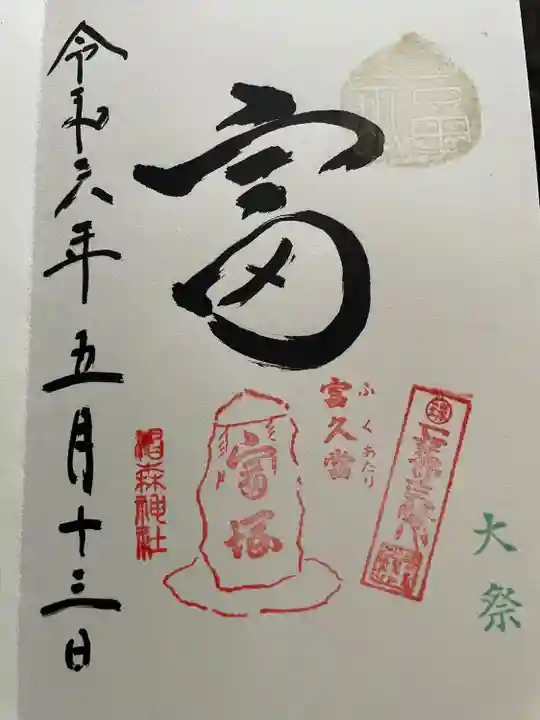 富
福
大祭
富久當
ふくあたり
富塚
椙森神社
令和六年五月十三日